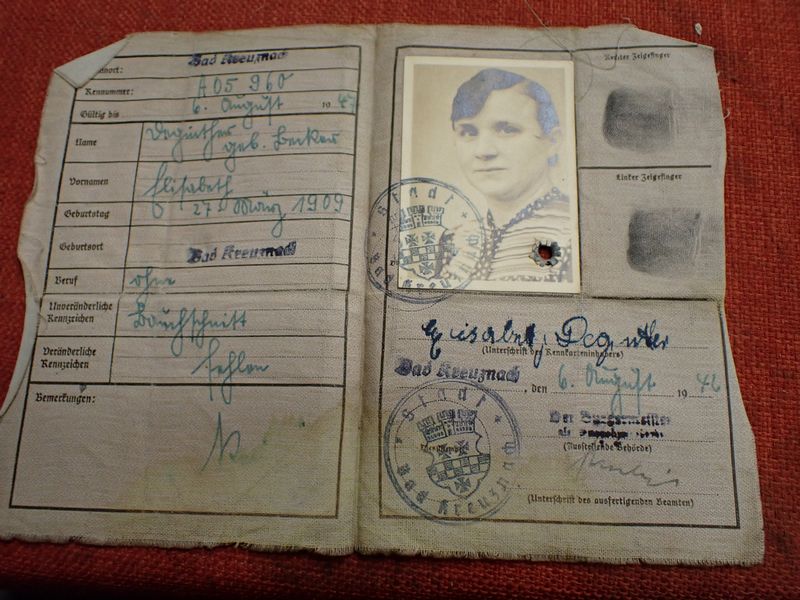 Bad Kreuznach
Kennummer: A05 960
Gültig bis 6. August 1947
Name
geb. Becker
Vornamen Elisabeth
Geburtstag 27 März 1909
Geburtsort Bad Kreuznach
Beruf ohne
Unveränderliche Kennzeichen Bauchschnitt
Veränderliche Kennzeichen fehlen
Bemerkungen:
Rechter Zeigefinger
Linker Zeigefinger
Stadt
Bad Kreuznach
(Unterschrift des Kennkarteninhabers)
Bad Kreuznach, den 6. August 1946
Der Bürgermeister
(Ausstellende Behörde)
Stadt
Bad Kreuznach
(Unterschrift des ausfertigenden Beamten)